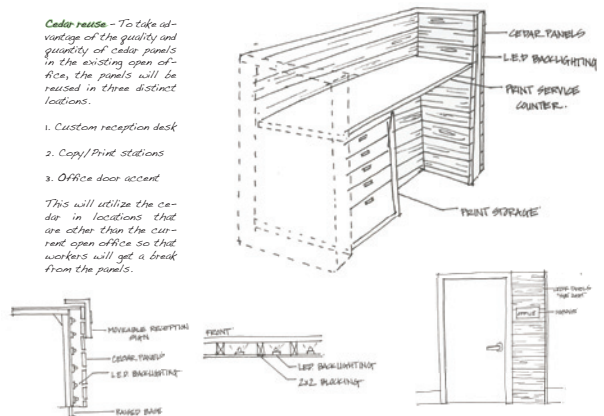 Cedar reuse - To take ad-
vantage of the quality and
quantity of cedar panels
in the existing open of-
fice, the panels will be
reused in three distinct
loations.
1. Custom reception desk
2. Copy/Print stations
3. Office door accent
This will utilize the ce-
dar in locations that
are other than the cur-
rent open office so that
workers will get a break
from the panels.
CEDAR PANELS
L.E.D BACKLIGHTING
PRINT SERVICE
COUNTER.
PRINT STORAGE
MOVEABLE RECEPTION
CEDAR PANELS
L.E.D BACKLIGHTING
RAISED BASE
FRONT
LED BACKLIGHTING
2x2 BLOCKING
CEDAR PANELS
OFFICE
SIGNAGE